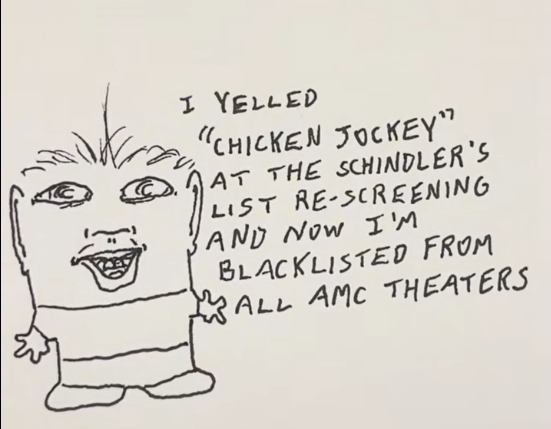 I YELLED
"CHICKEN JOCKEY"
AT THE SCHINDLER'S
LIST RE-SCREENING
AND NOW I'M
BLACKLISTED FROM
ALL AMC THEATERS